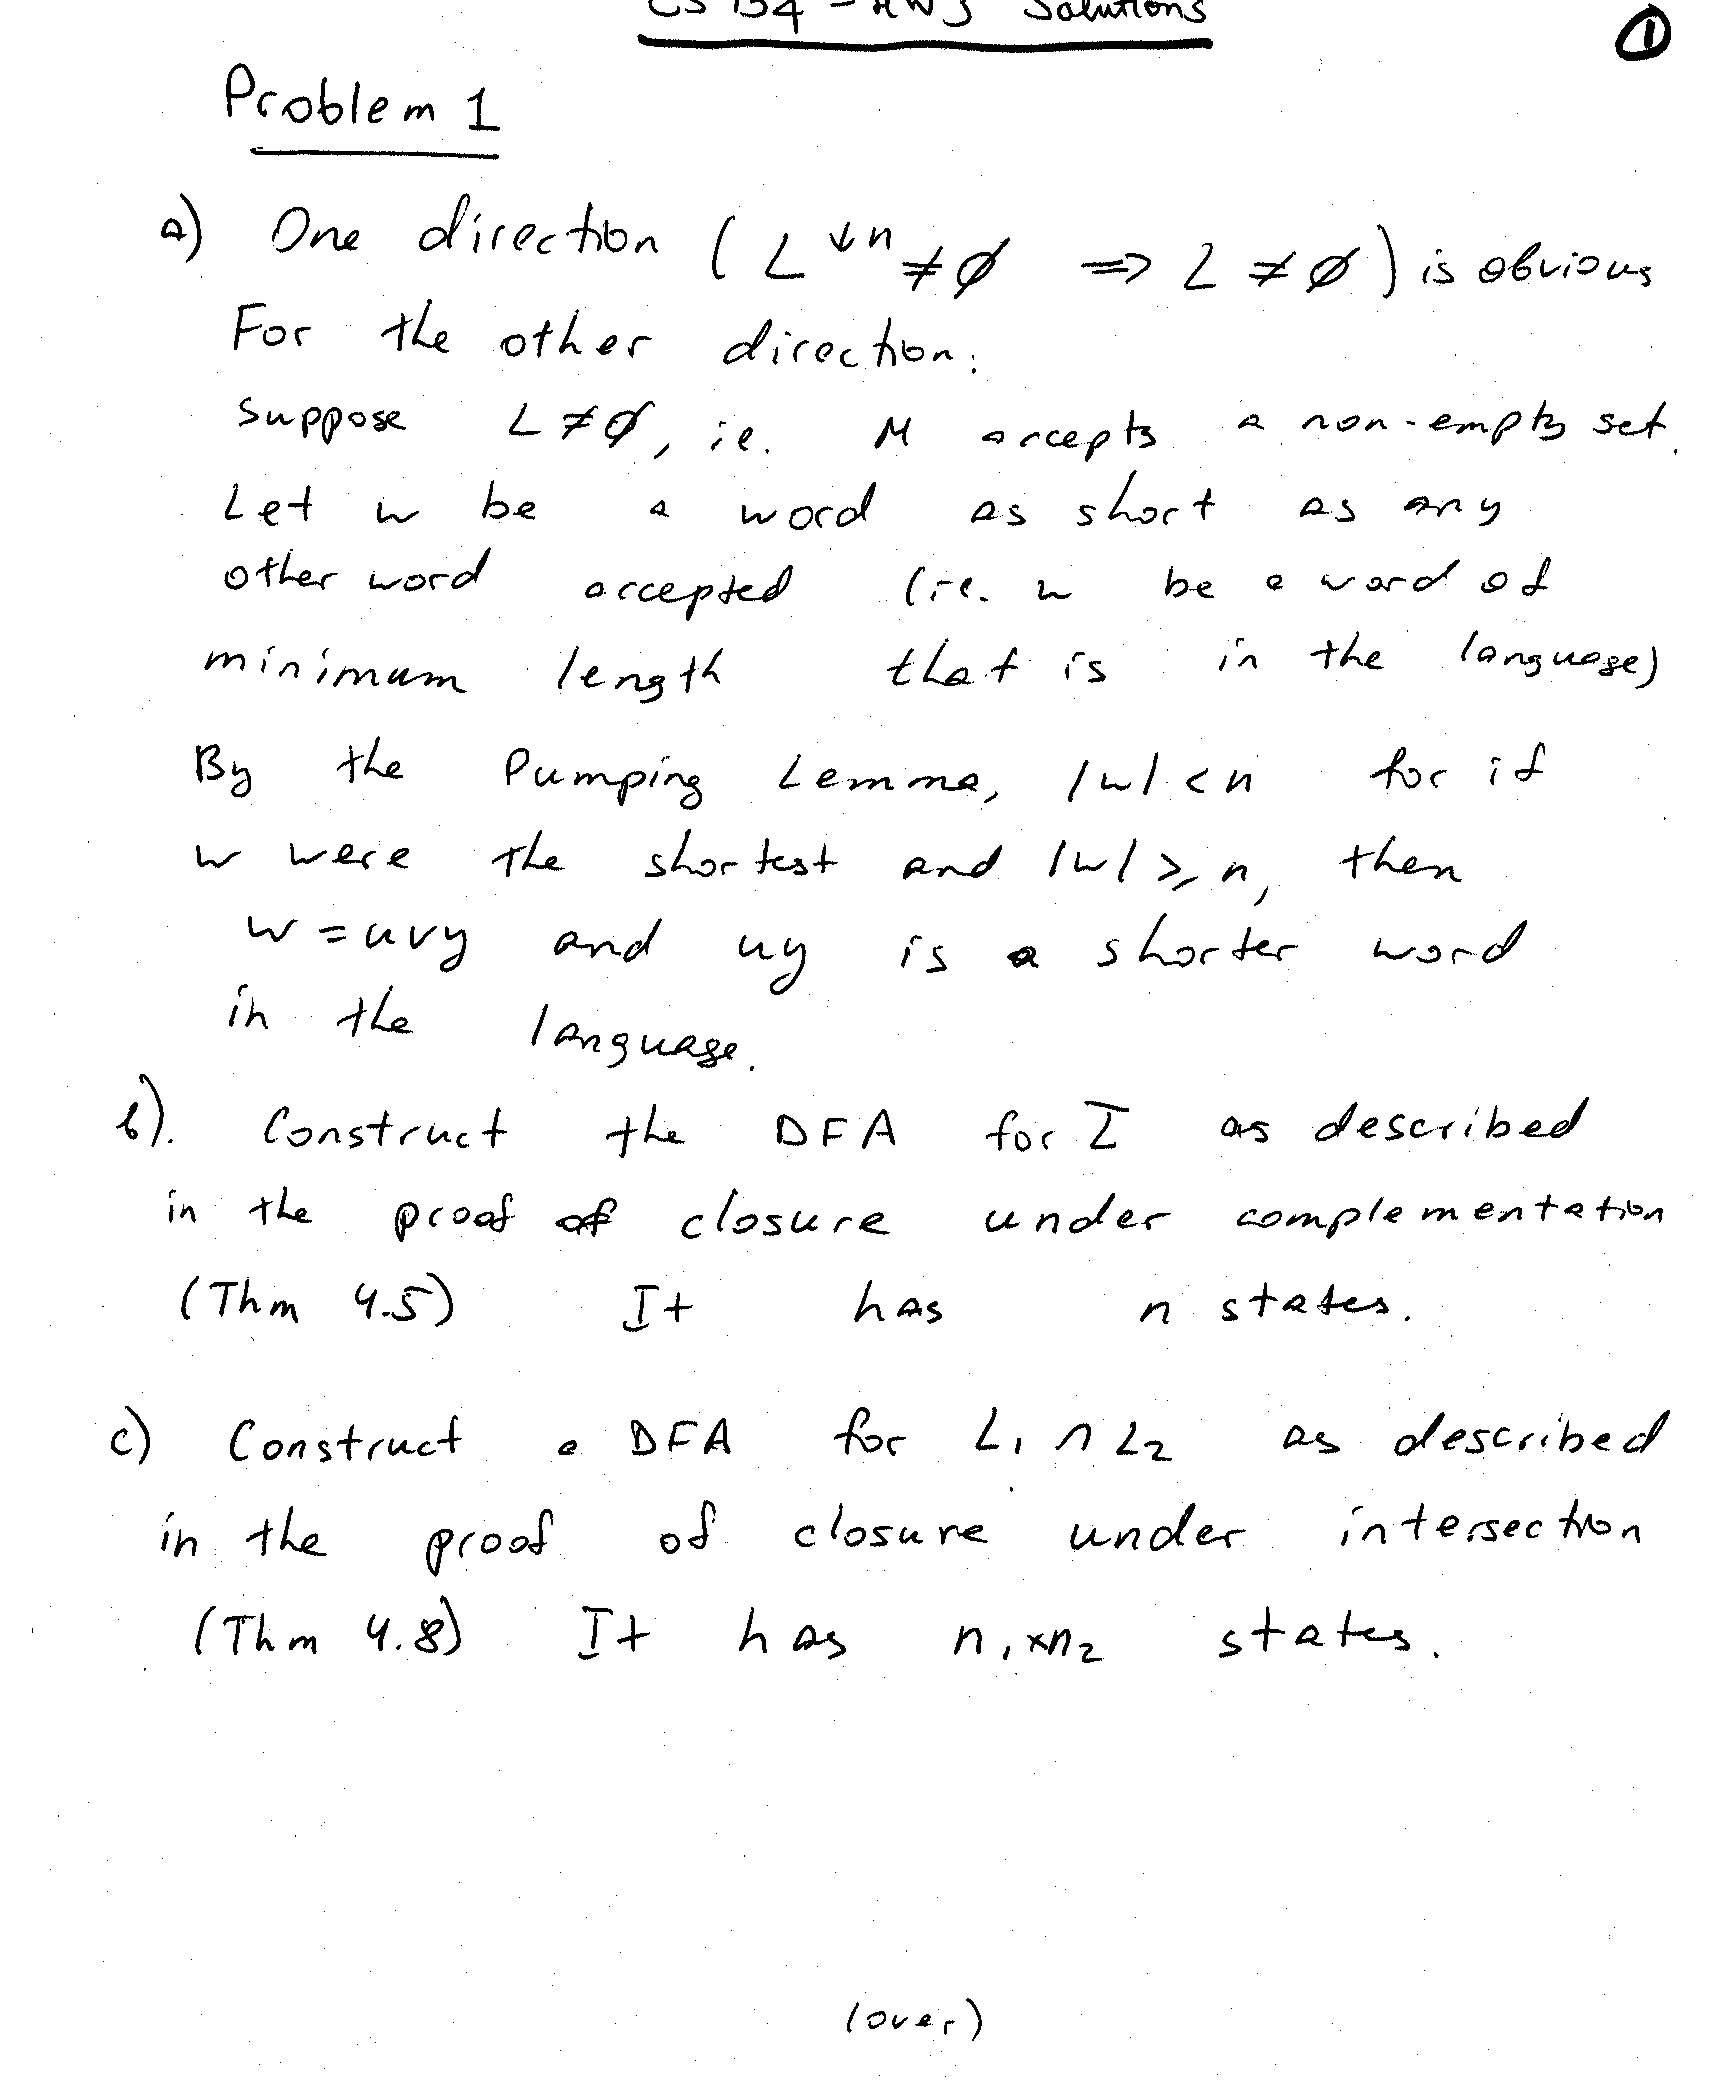 CS 134 - HW 3 Solutions
①
Problem 1
a) One direction ( L^↓n ≠ ∅ ⇒ L ≠ ∅ ) is obvious
For the other direction:
Suppose L ≠ ∅, ie. M accepts a non-empty set.
Let w be a word as short as any
other word accepted (ie. w be a word of
minimum length that is in the language)
By the Pumping Lemma, |w| < n for if
w were the shortest and |w| ≥ n, then
w = uvy and uy is a shorter word
in the language.
b). Construct the DFA for L̅ as described
in the proof of closure under complementation
(Thm 4.5) It has n states.
c) Construct a DFA for L₁ ∩ L₂ as described
in the proof of closure under intersection
(Thm 4.8) It has n₁×n₂ states.
(over)